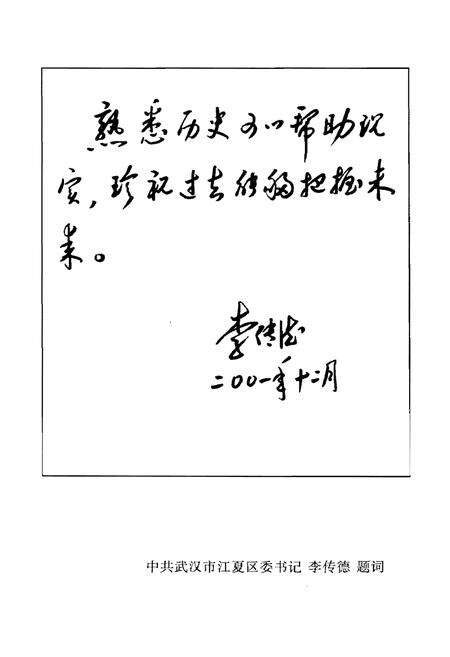 熟悉历史可以帮助现
实，珍视过去能够把握未
来。
李传德
二〇〇一年十二月
中共武汉市江夏区委书记 李传德 题词